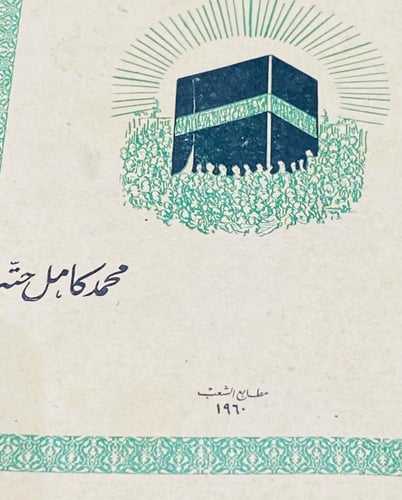 محمد كامل حته
مطابع الشعب
١٩٦٠